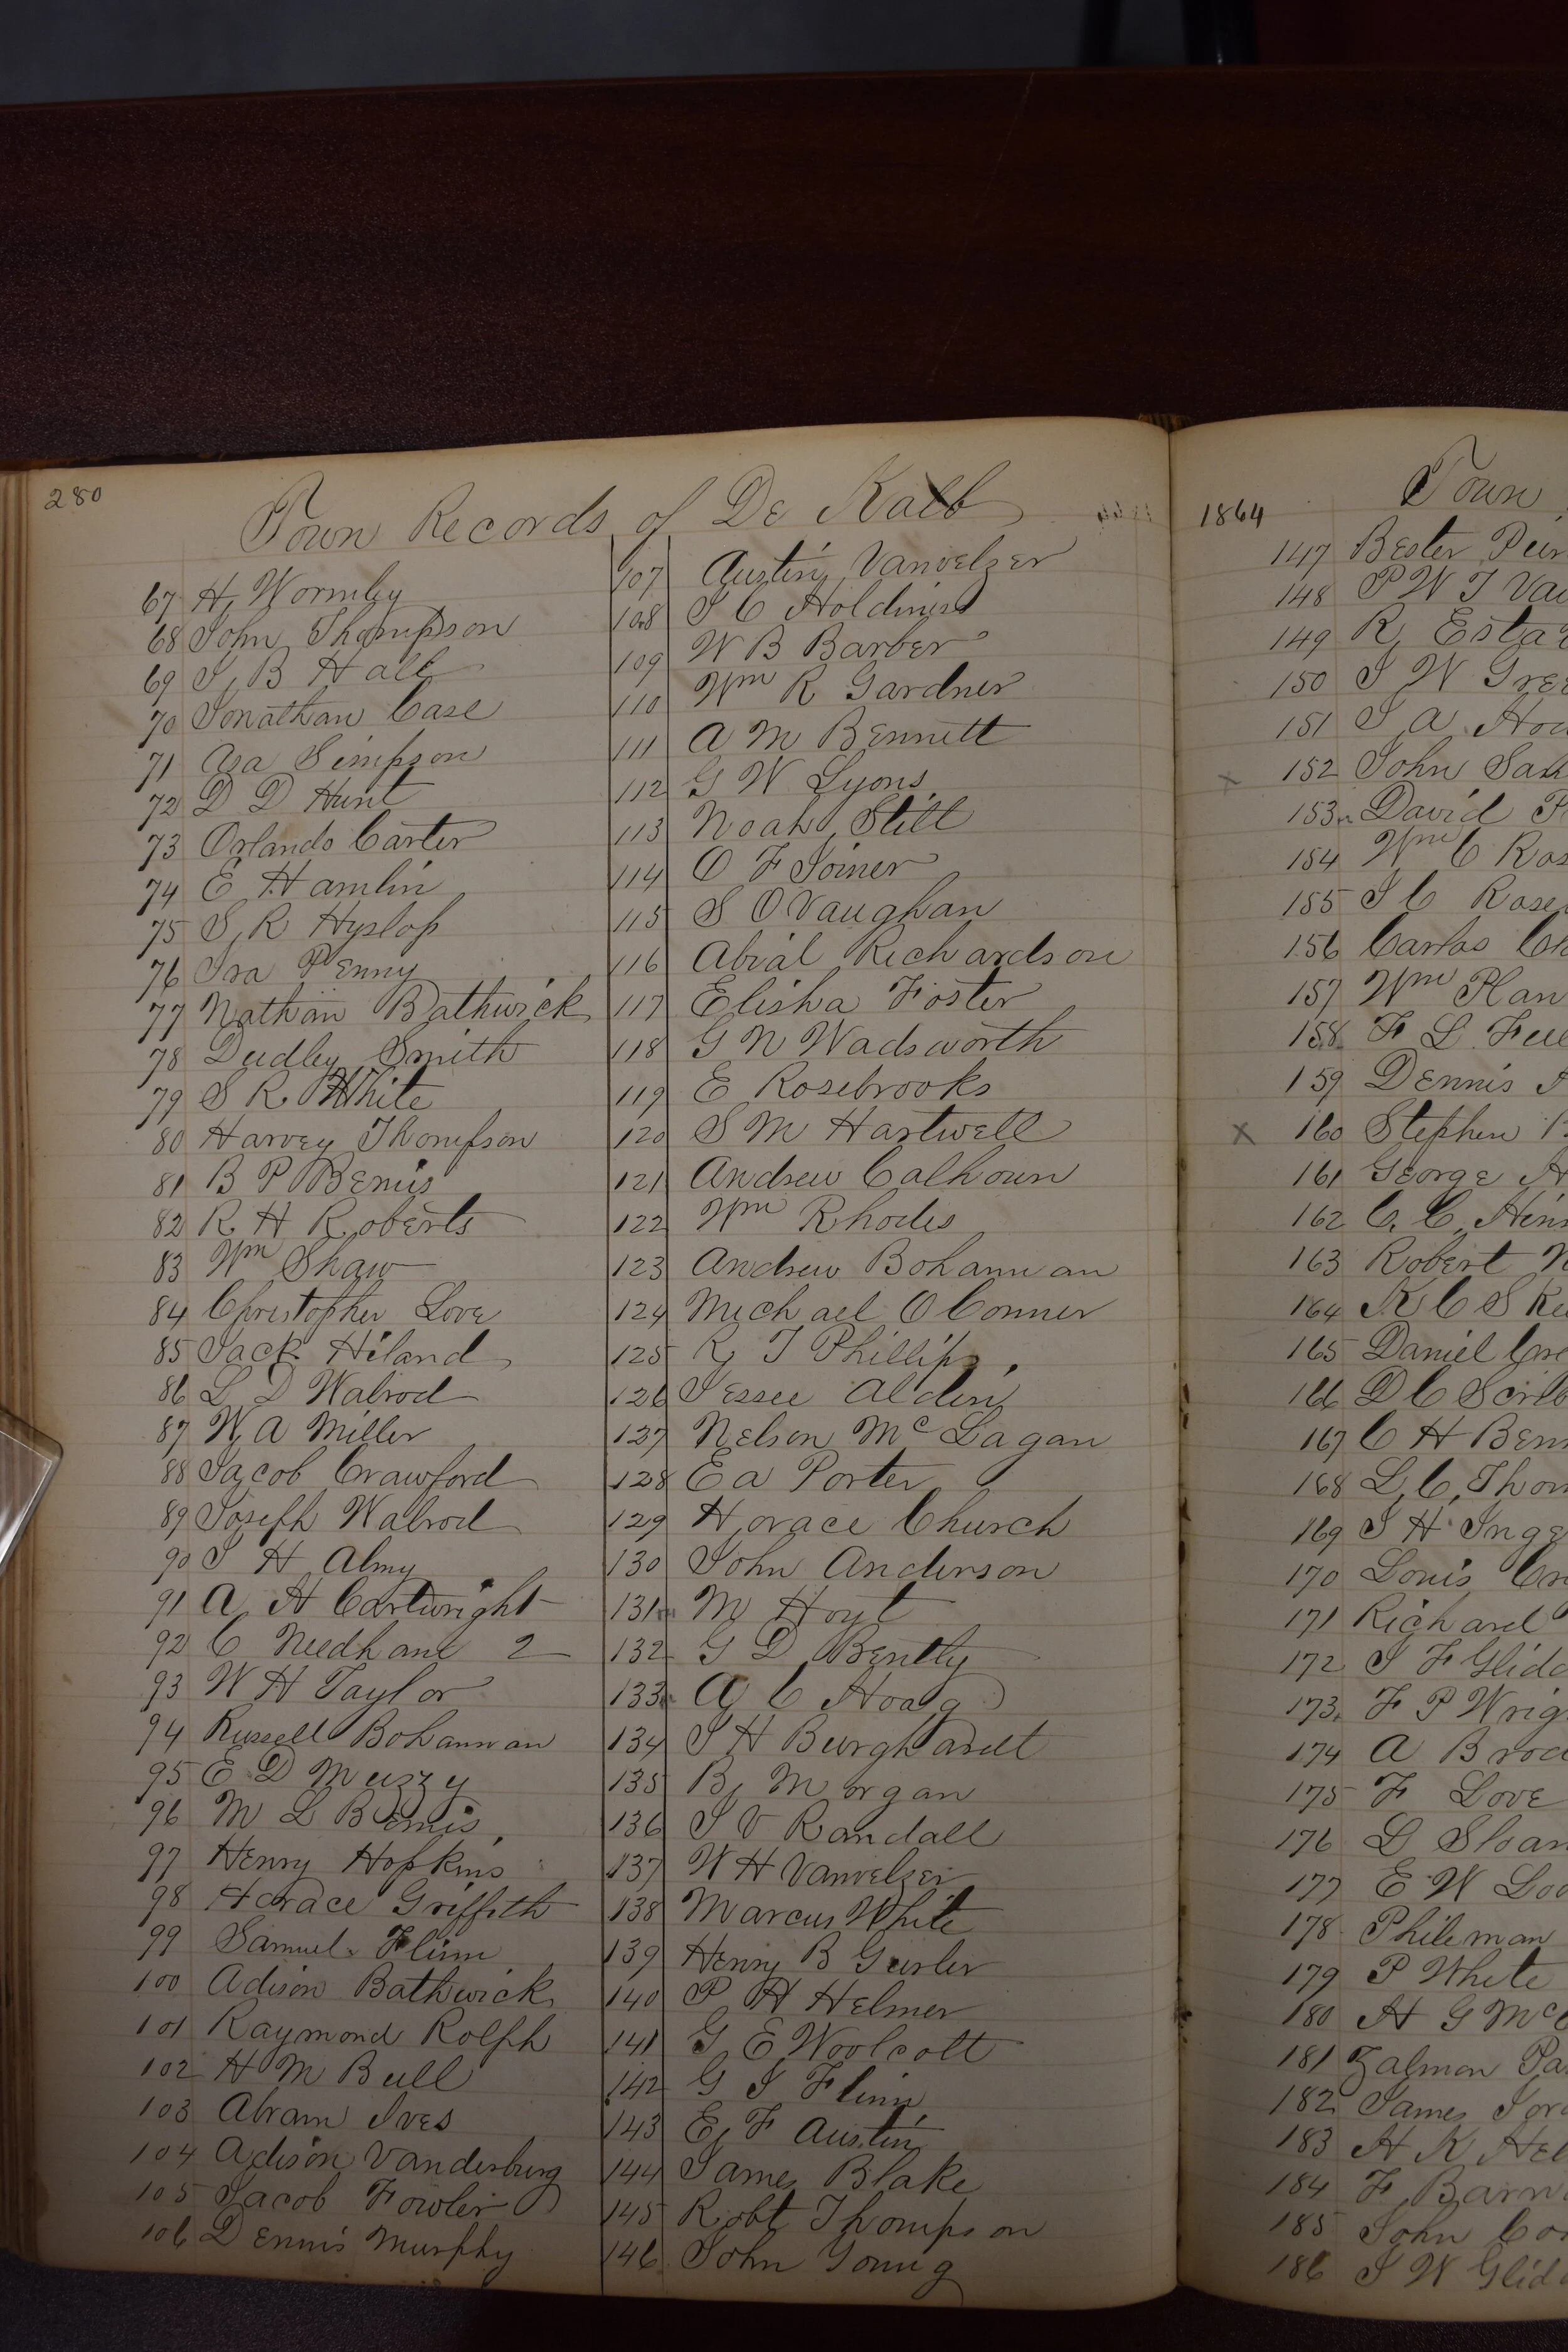 280
Town Records of De Kalb
67 H. Wormley
68 John Thompson
69 I. B Hall
70 Jonathan Case
71 Asa Simpson
72 D D Hunt
73 Orlando Carter
74 E Hamlin
75 S. R Hyslop
76 Ira Penny
77 Nathan Bathwick
78 Dudley Smith
79 S R White
80 Harvey Thompson
81 B P Bemis
82 R H Roberts
83 Wm Shaw
84 Christopher Love
85 Jack Hiland
86 L D Walrod
87 W A Miller
88 Jacob Crawford
89 Joseph Walrod
90 I H Almy
91 A H Cartwright
92 C Needham 2
93 W H Taylor
94 Russell Bohannan
95 E D Muzzy
96 M L Bemis
97 Henry Hopkins
98 Horace Griffith
99 Samuel Flinn
100 Adison Bathwick
101 Raymond Rolph
102 H M Bull
103 Abram Ives
104 Adison Vanderburg
105 Jacob Fowler
106 Dennis Murphy
107 Austin Vanvelzer
108 I C Holdiness
109 W B Barber
110 Wm R Gardner
111 A M Bennett
112 G W Lyons
113 Noah Still
114 O F Joiner
115 S O Vaughan
116 Abial Richardson
117 Elisha Foster
118 G N Wadsworth
119 E Rosebrooks
120 S M Hartwell
121 Andrew Calhoun
122 Wm Rhodes
123 Andrew Bohannan
124 Michael O Conner
125 R T Phillips
126 Jessee Alden
127 Nelson Mc Lagan
128 E A Porter
129 Horace Church
130 John Anderson
131 M Hoyt
132 G D Bently
133 A C Hoag
134 I H Burghardt
135 B. Morgan
136 I V Randall
137 W H Vanvelzer
138 Marcus White
139 Henry B Gurler
140 P H Helmer
141 G E Woolcott
142 G I Flinn
143 E. F Austin
144 James Blake
145 Robt Thompson
146 John Young
1864
Town
147 Bester
148 P W T
149 R
150 I W
151 I A
152 John
153 David
154 Wm C
155 I C
156 Carlos
157 Wm
158 F L
159 Dennis
160 Stephen
161 George
162 C. C.
163 Robert
164 K C S
165 Daniel
166 D C
167 C H
168 L. C.
169 I H
170 Louis
171 Richard
172 I F
173 F P
174 A
175 F Love
176 D Sloan
177 E W
178 Phileman
179 P White
180 H G
181 Zalmon
182 James
183 H K
184 F.
185 John
186 I W